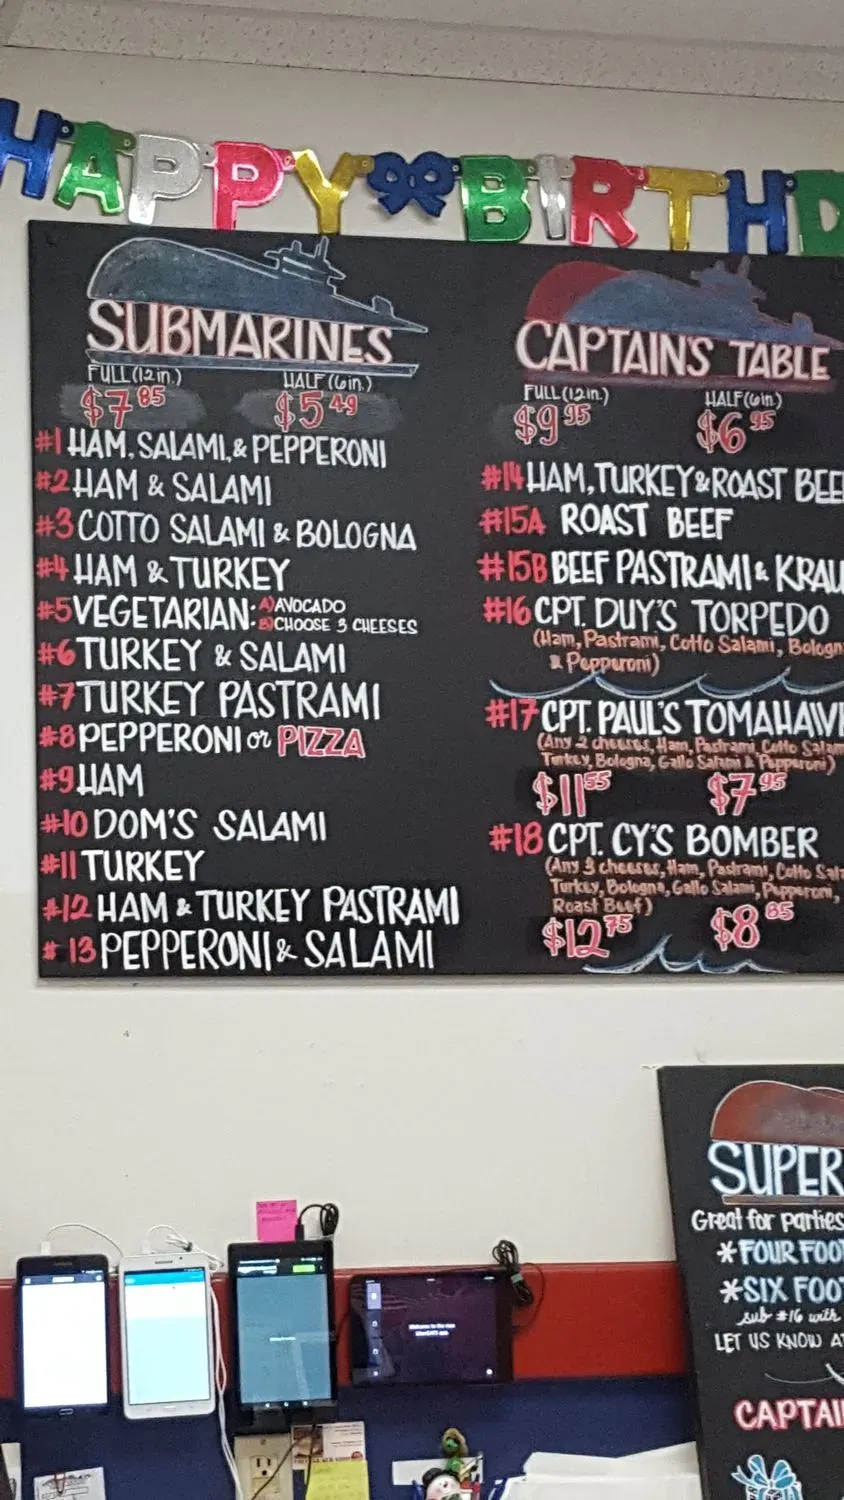 HAPPY BIRTHD
SUBMARINES
FULL (12in.) HALF (6in.)
$7.85 $5.49
#1 HAM, SALAMI, & PEPPERONI
#2 HAM & SALAMI
#3 COTTO SALAMI & BOLOGNA
#4 HAM & TURKEY
#5 VEGETARIAN: A) AVOCADO
B) CHOOSE 3 CHEESES
#6 TURKEY & SALAMI
#7 TURKEY PASTRAMI
#8 PEPPERONI or PIZZA
#9 HAM
#10 DOM'S SALAMI
#11 TURKEY
#12 HAM & TURKEY PASTRAMI
#13 PEPPERONI & SALAMI
CAPTAIN'S TABLE
FULL (12in.) HALF (6in)
$9.95 $6.95
#14 HAM, TURKEY & ROAST BEEF
#15A ROAST BEEF
#15B BEEF PASTRAMI & KRAU
#16 CPT. DUY'S TORPEDO
(Ham, Pastrami, Cotto Salami, Bologn
& Pepperoni)
#17 CPT. PAUL'S TOMAHAW
(Any 2 cheeses, Ham, Pastrami, Cotto Salam
Turkey, Bologna, Gallo Salami & Pepperoni)
$11.55 $7.95
#18 CPT. CY'S BOMBER
(Any 3 cheeses, Ham, Pastrami, Cotto Sala
Turkey, Bologna, Gallo Salami, Pepperoni,
Roast Beef)
$12.75 $8.85
SUPER
Great for parties
*FOUR FOO
*SIX FOO
sub #16 with
LET US KNOW A
CAPTAI
Welcome to the new
UberEATS app